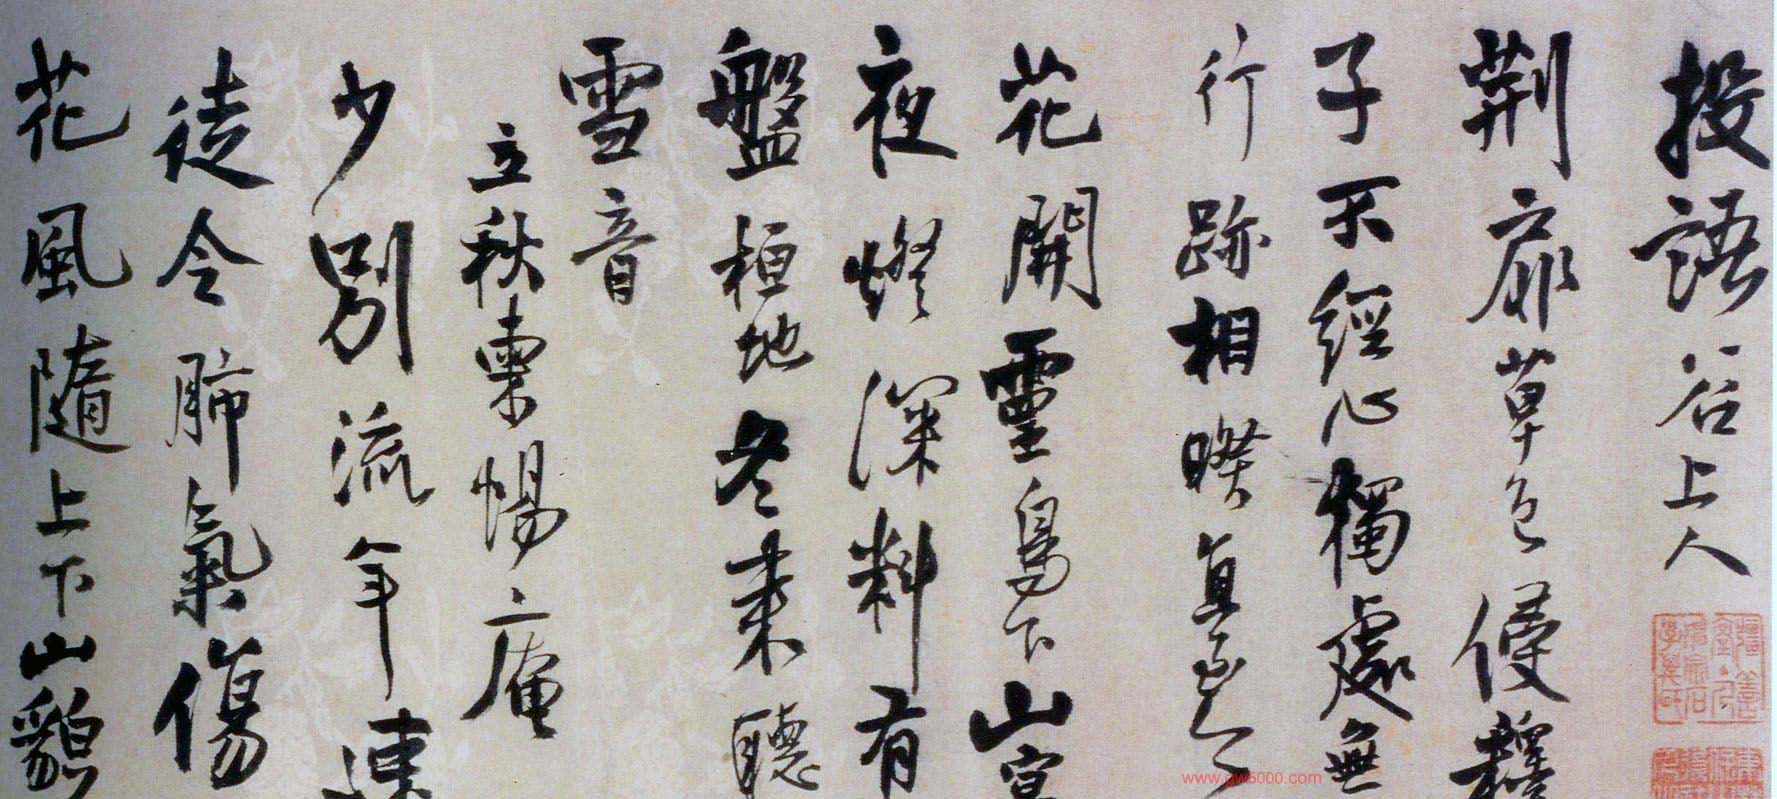 投語谷上人
荊扉草色侵釋
子不經心獨處無
行跡相暌直至今
花開靈鳥下山空
夜燈深料有
盤桓地冬來聽
雪音
立秋柬惕庵
少別流年速
徒令肺氣傷
花風隨上下山貌